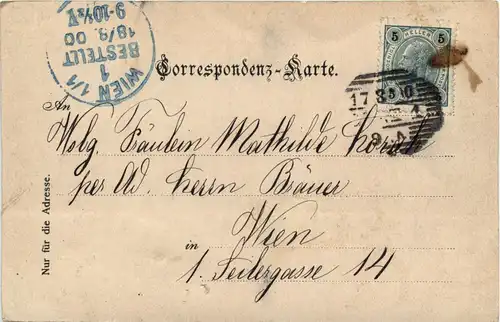 WIEN 1/1
1
BESTELLT
18/8.00
9-10½V
Correspondenz-Karte.
5 HELLER 5
17 8 00
An
Wolg. Fräulein Mathilde
per Ad. Herrn Bräuer
in Wien
1. Seilergasse 14
Nur für die Adresse.